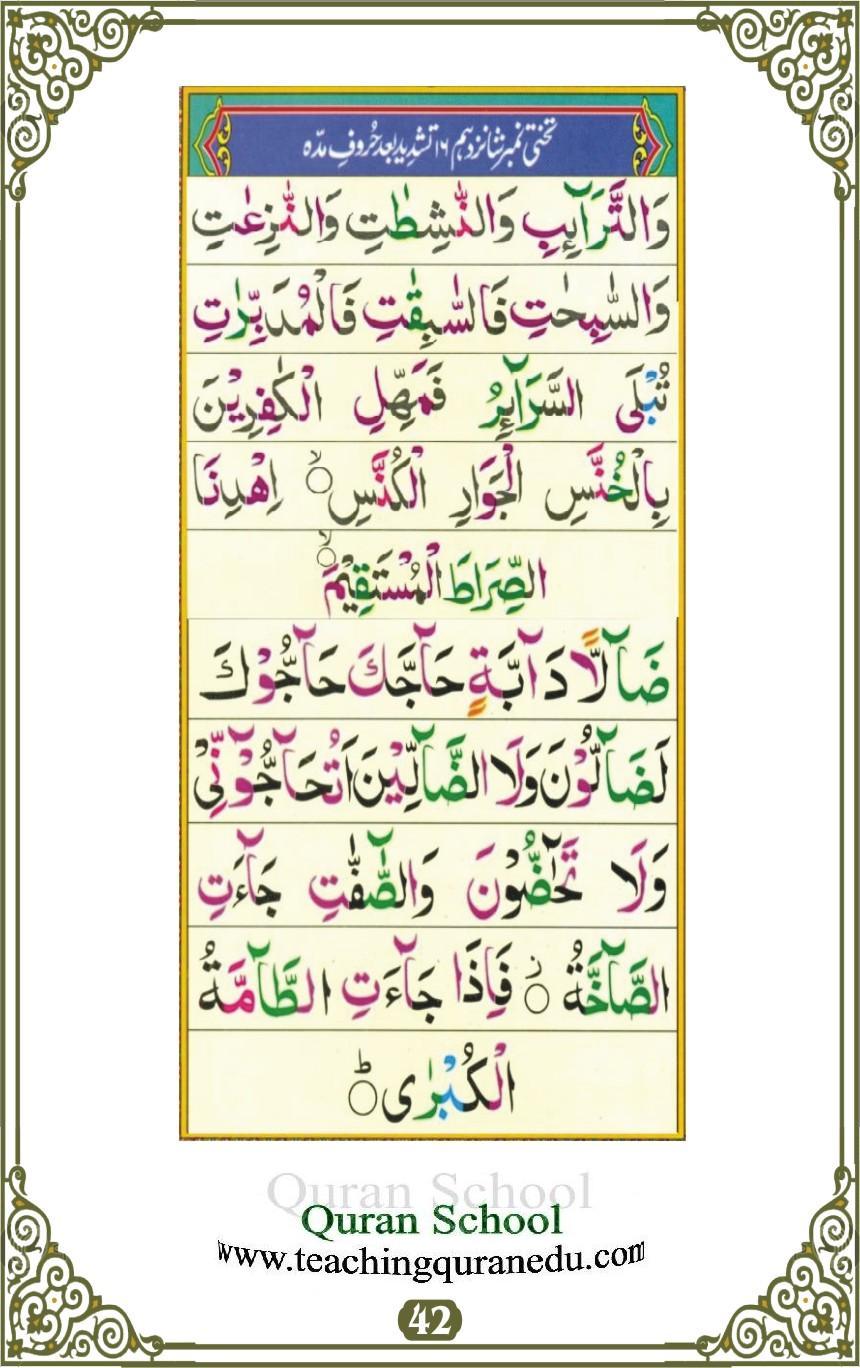 تختی نمبر شانزدہم ۱۶ تشدید بعد حُروفِ مدّہ
وَالتَّرَآئِبِ وَالنّٰشِطٰتِ وَالنّٰزِعٰتِ
وَالسّٰبِحٰتِ فَالسّٰبِقٰتِ فَالْمُدَبِّرٰتِ
تُبْلَى السَّرَآئِرُ فَمَهِّلِ الْكٰفِرِيْنَ
بِالْخُنَّسِ الْجَوَارِ الْكُنَّسِ ۙ اِهْدِنَا
الصِّرَاطَ الْمُسْتَقِيْمَ ۙ
ضَآلًّا دَآبَّةٍ حَآجَّكَ حَآجُّوْكَ
لَضَآلُّوْنَ وَلَا الضَّآلِّيْنَ اَتُحَآجُّوْٓنِّيْ
وَلَا تَحٰٓضُّوْنَ وَالصّٰٓفّٰتِ جَآءَتِ
الصَّآخَّةُ ۫ فَاِذَا جَآءَتِ الطَّآمَّةُ
الْكُبْرٰى ؕ
Quran School
Quran School
www.teachingquranedu.com
42